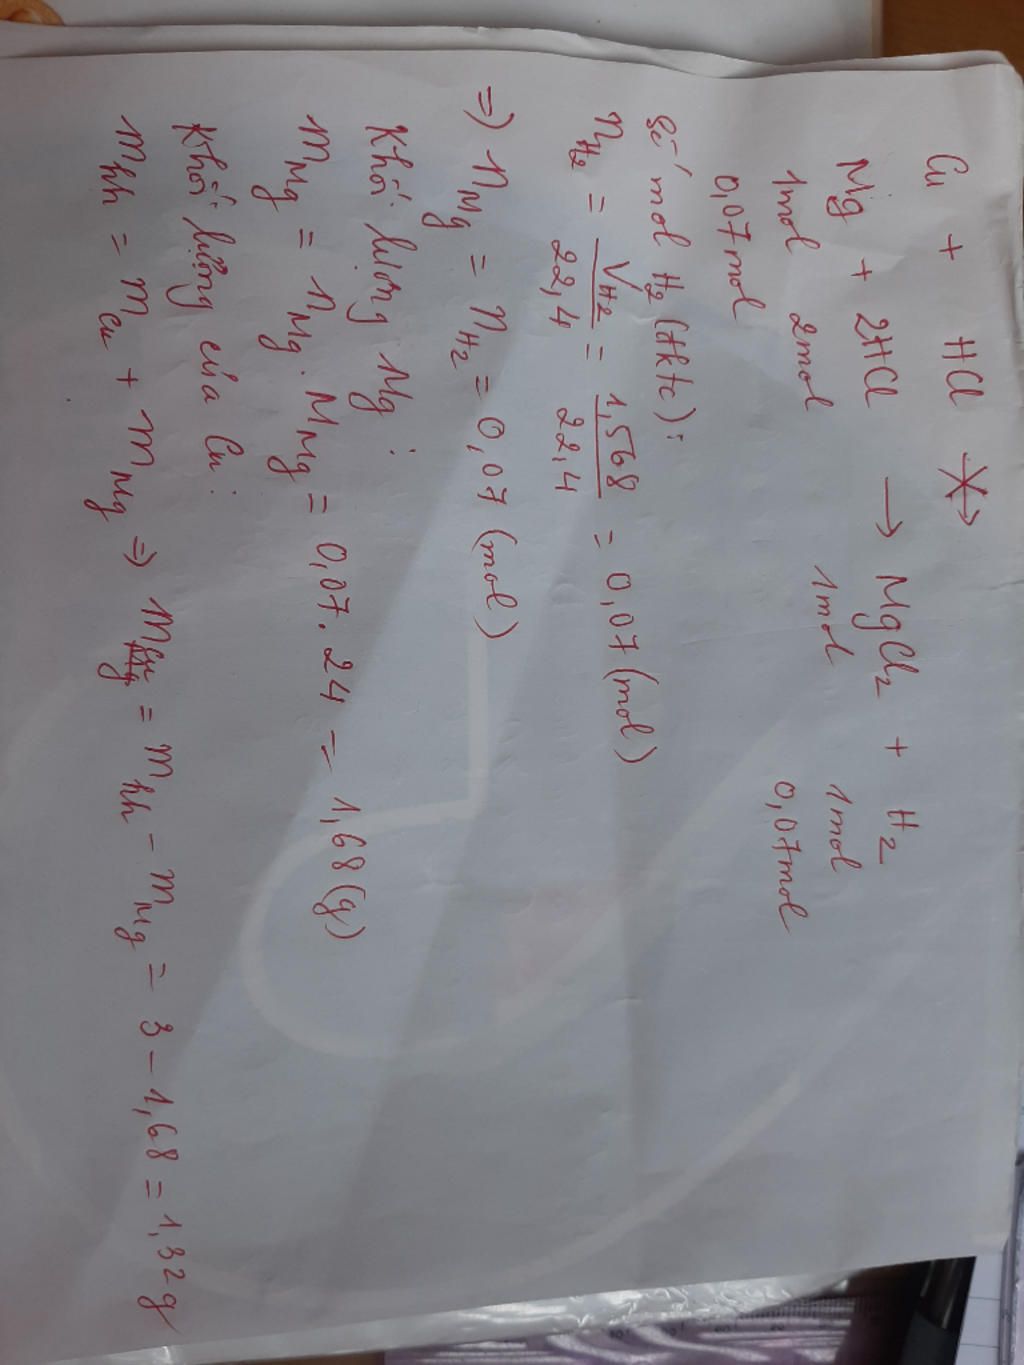 Cu + HCl ↛
Mg + 2HCl → MgCl₂ + H₂
1mol 2mol 1mol 1mol
0,07mol 0,07mol
Số mol H₂ (đktc):
n_H₂ = V_H₂/22,4 = 1,568/22,4 = 0,07 (mol)
=> n_Mg = n_H₂ = 0,07 (mol)
Khối lượng Mg:
m_Mg = n_Mg . M_Mg = 0,07 . 24 = 1,68 (g)
Khối lượng của Cu:
m_hh = m_Cu + m_Mg => m_Cu = m_hh - m_Mg = 3 - 1,68 = 1,32 g